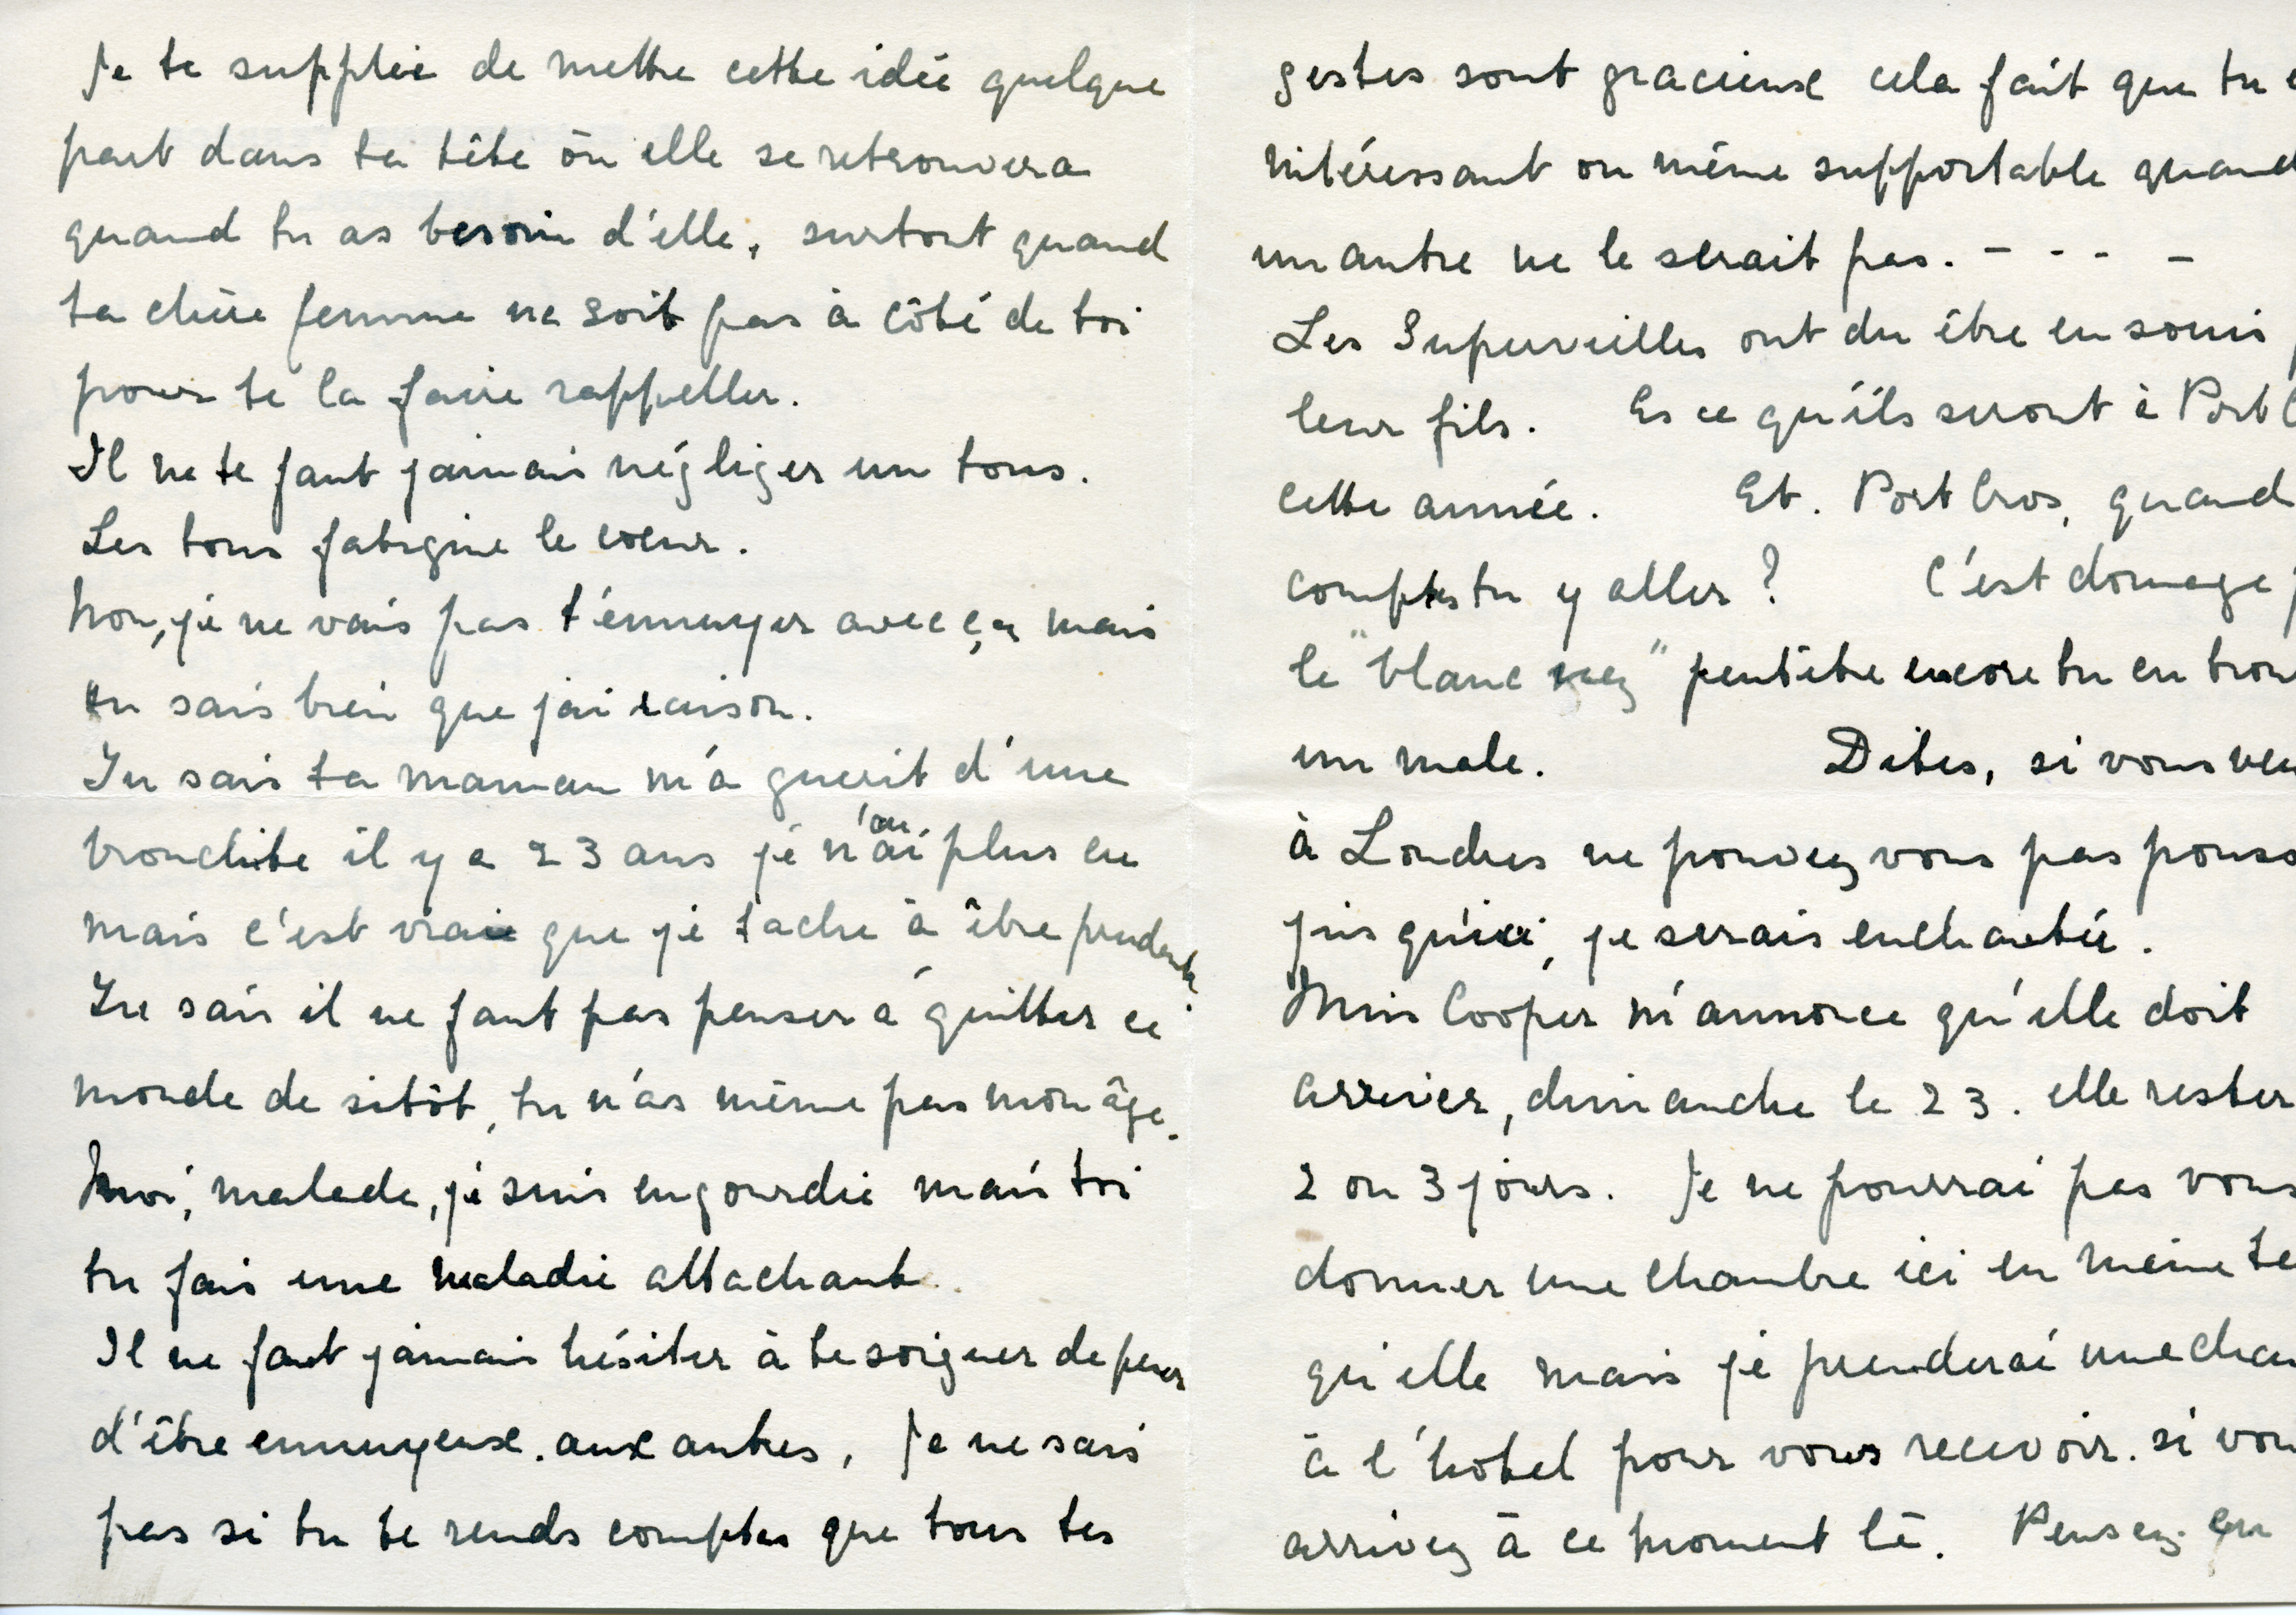 Je te supplie de mettre cette idée quelque
part dans ta tête où elle se retrouvera
quand tu as besoin d'elle, surtout quand
ta chère femme ne soit pas à côté de toi
pour te la faire rappeller.
Il ne te faut jamais négliger un tous.
Les tous fatigue le coeur.
Non, je ne vais pas t'ennuyer avec ça mais
tu sais bien que j'ai raison.
Tu sais ta maman m'a guerit d'une
bronchite il y a 23 ans je n'ai plus eu
mais c'est vraie que je tache à être prudente.
Tu sais il ne faut pas penser à quitter ce
monde de sitôt, tu n'as même pas mon âge.
Moi, malade, je suis engourdie mais toi
tu fais une maladie attachant.
Il ne faut jamais hésiter à te soigner de peur
d'être ennuyeux aux autres, Je ne sais
pas si tu te rends comptes que tous tes
gestes sont gracieux cela fait que tu
intéressant ou même supportable quand
un autre ne le serait pas. - - - -
Les Supervielles ont du être en soucis
leur fils. Es ce qu'ils seront à Port
cette année. Et. Port Cros, quand
comptes tu y aller ? C'est domage
le "blanc nez" peutêtre encore tu en trou
un male. Dites, si vous ven
à Londres ne pouvez vous pas pouss
jusqu'ici, je serais enchantée.
Miss Cooper m'annonce qu'elle doit
arriver, dimanche le 23. elle rester
2 ou 3 jours. Je ne pourrai pas vous
donner une chambre ici en même te
qu'elle mais je prenderai une cham
à l'hotel pour vous recevoir. si vou
arrivez à ce moment là. Pensez